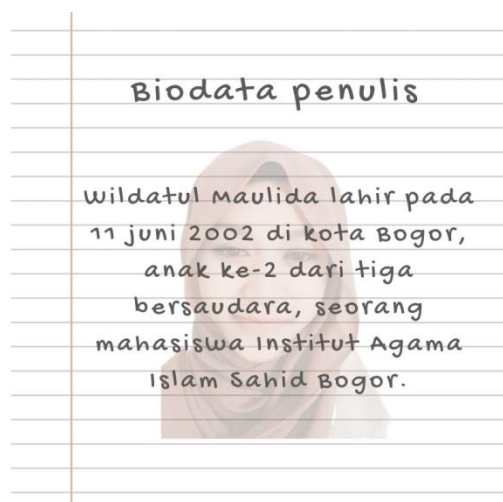 Biodata penulis
Wildatul Maulida lahir pada
11 juni 2002 di kota Bogor,
anak ke-2 dari tiga
bersaudara, seorang
mahasiswa Institut Agama
Islam Sahid Bogor.